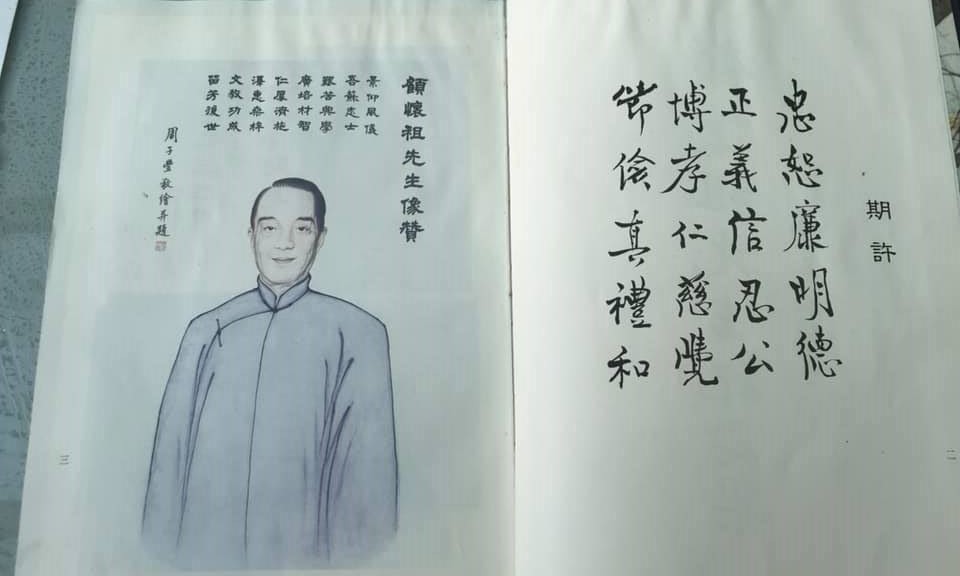 期許
忠恕廉明德
正義信忍公
博孝仁慈覺
節儉真禮和
二
顧懷祖先生像贊
景仰風儀
吾蘇志士
艱苦興學
廣培材智
仁厚濟施
澤惠桑梓
文教功成
留芳後世
周子豐敬繪并題
三